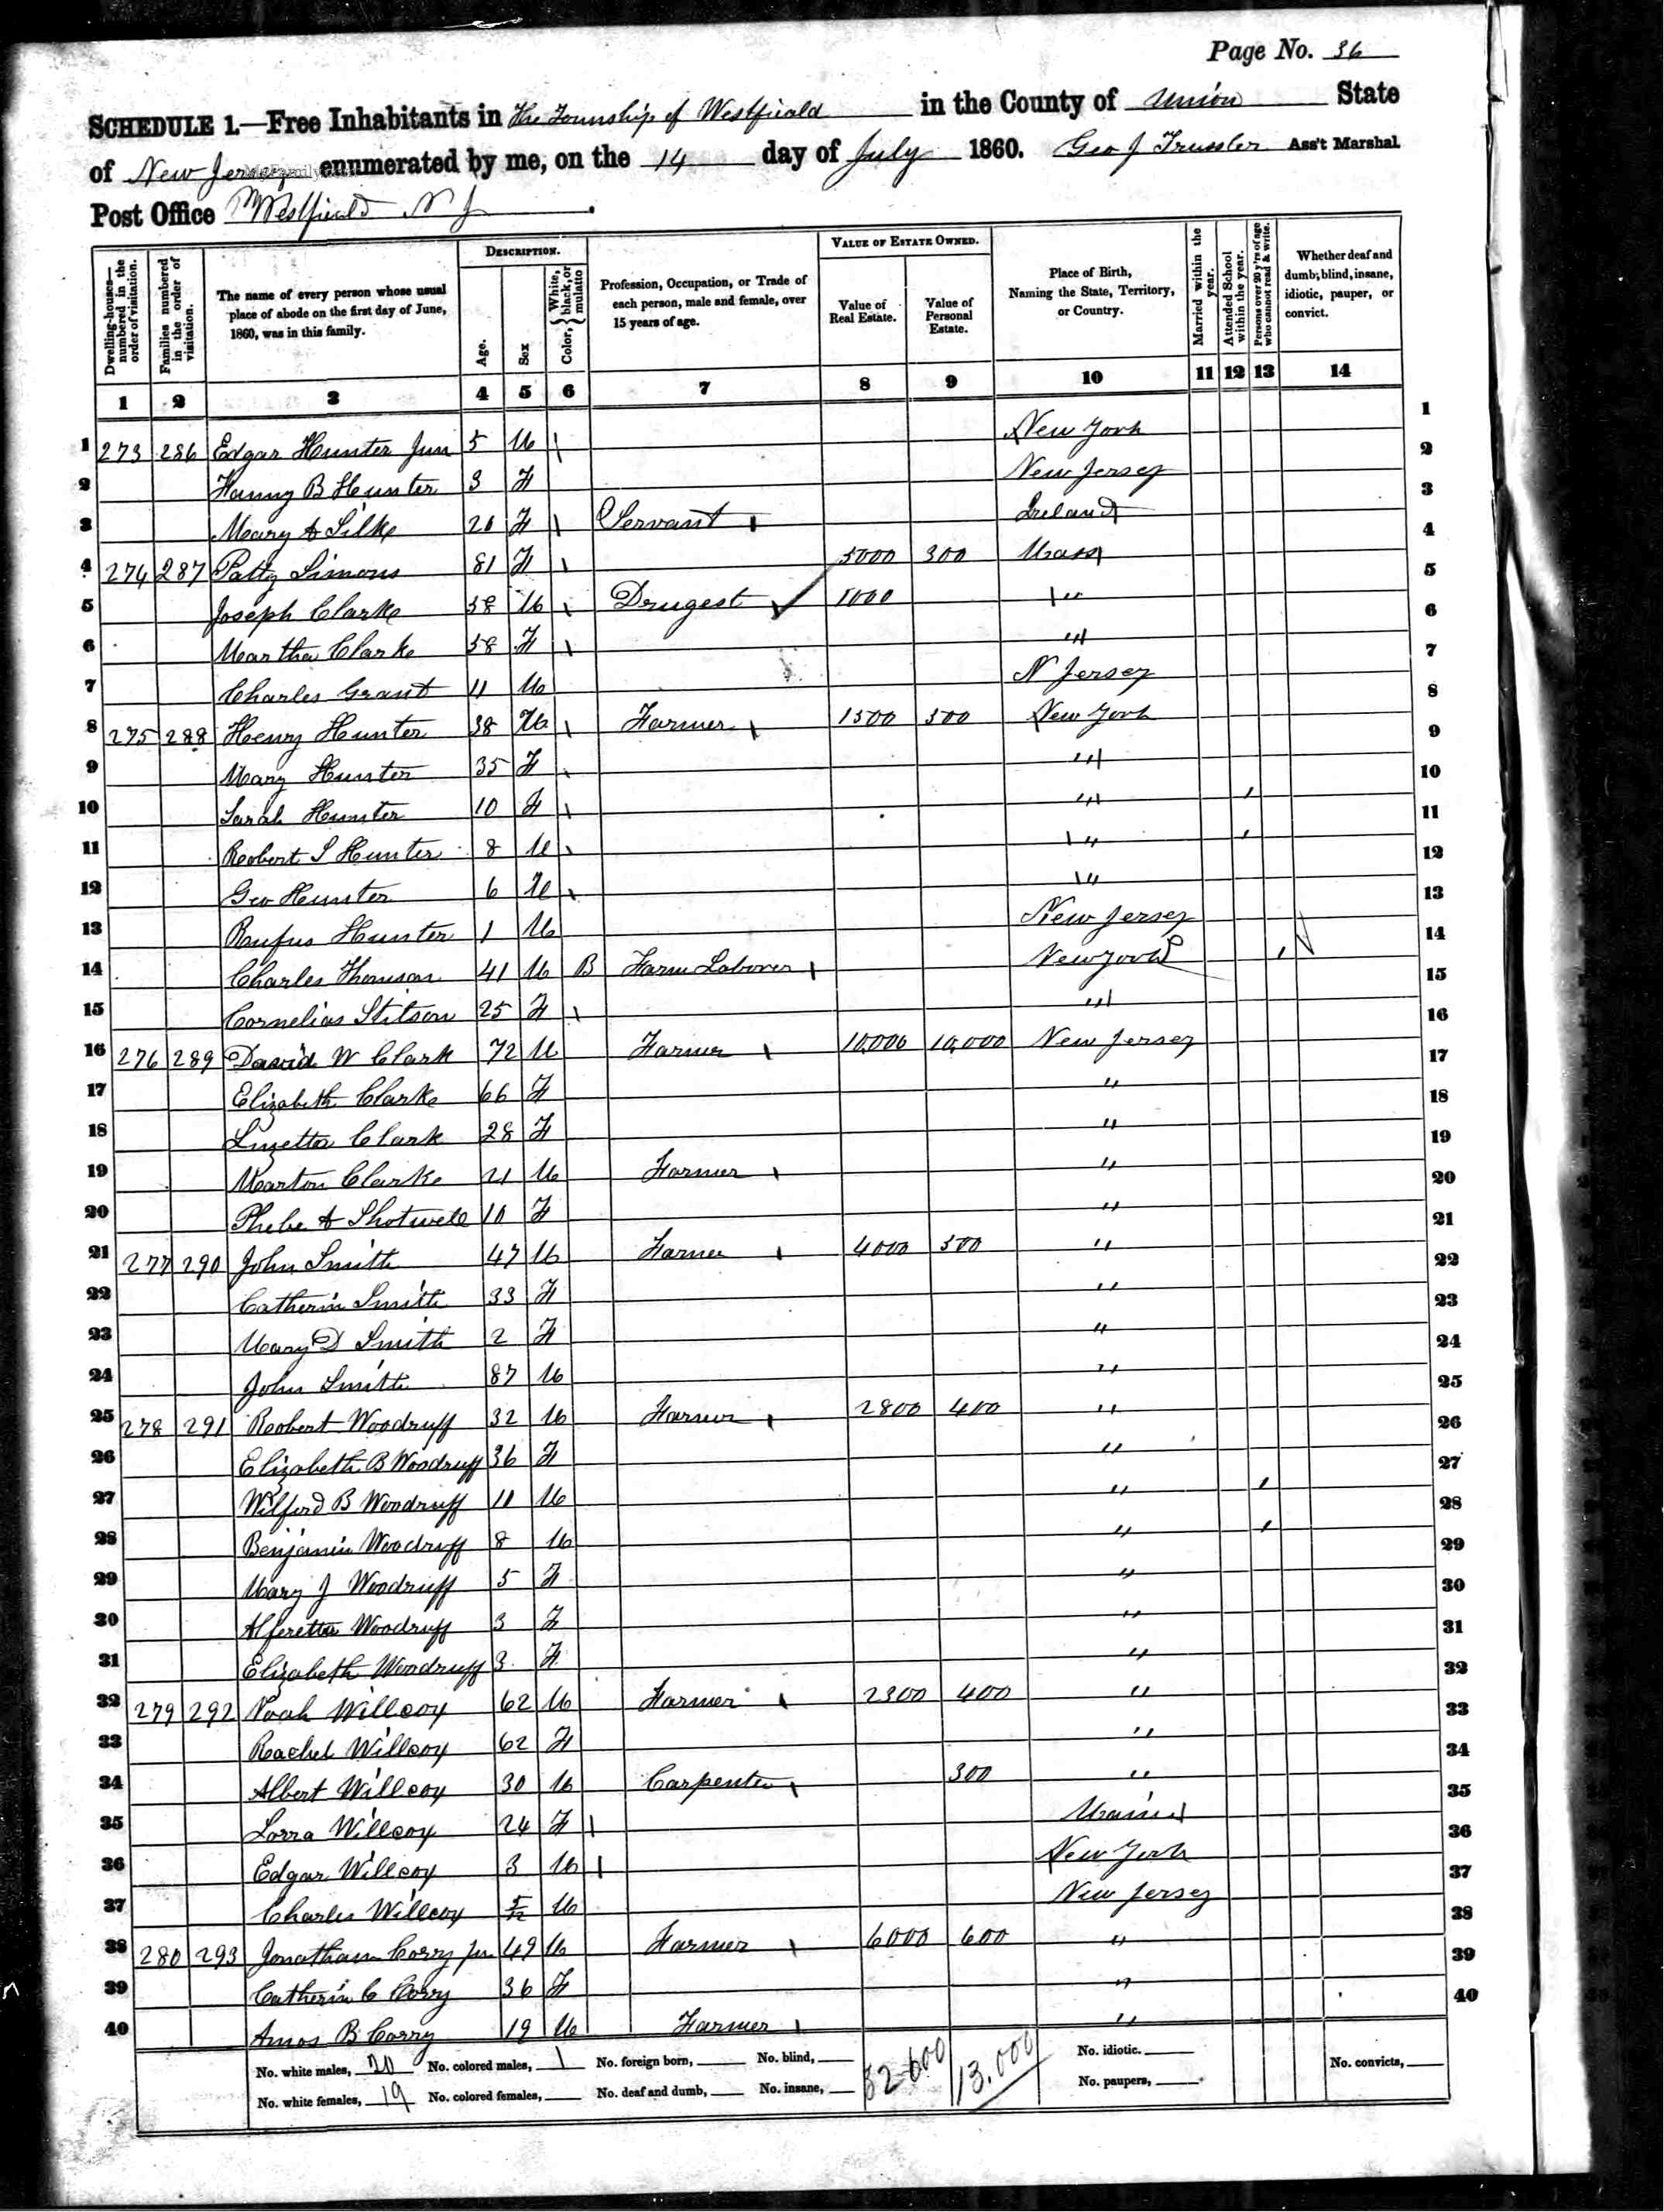 Page No. 36
SCHEDULE 1.—Free Inhabitants in The Township of Westfield in the County of Union State
of New Jersey enumerated by me, on the 14 day of July 1860. Geo J Trussler Ass't Marshal.
Post Office Westfield N J
Dwelling-houses—numbered in the order of visitation.
Families numbered in the order of visitation.
The name of every person whose usual place of abode on the first day of June, 1860, was in this family.
DESCRIPTION.
Age.
Sex
Color, { White, black, or mulatto
Profession, Occupation, or Trade of each person, male and female, over 15 years of age.
VALUE OF ESTATE OWNED.
Value of Real Estate.
Value of Personal Estate.
Place of Birth, Naming the State, Territory, or Country.
Married within the year.
Attended School within the year.
Persons over 20 y'rs of age who cannot read & write.
Whether deaf and dumb, blind, insane, idiotic, pauper, or convict.
1 2 3 4 5 6 7 8 9 10 11 12 13 14
1 273 286 Edgar Hunter Jun 5 M New York 1
2 Fanny B Hunter 3 F New Jersey 2
3 Mary A Silke 20 F Servant Ireland 3
4 274 287 Patty Simons 81 F 5000 300 Mass 4
5 Joseph Clarke 58 M Drugest 1000 " 5
6 Martha Clarke 58 F " 6
7 Charles Grant 11 M N Jersey 7
8 275 288 Henry Hunter 38 M Farmer 1500 500 New York 8
9 Mary Hunter 35 F " 9
10 Sarah Hunter 10 F " 10
11 Robert S Hunter 8 M " 11
12 Geo Hunter 6 M " 12
13 Rufus Hunter 1 M New Jersey 13
14 Charles Thomson 41 M B Farm Laborer New York 14
15 Cornelias Stitson 25 F " 15
16 276 289 David W Clark 72 M Farmer 10,000 10,000 New Jersey 16
17 Elizabeth Clarke 66 F " 17
18 Luzetta Clark 28 F " 18
19 Marton Clarke 21 M Farmer " 19
20 Phebe A Shotwell 10 F " 20
21 277 290 John Smith 47 M Farmer 4000 500 " 21
22 Catherin Smith 33 F " 22
23 Mary D Smith 2 F " 23
24 John Smith 87 M " 24
25 278 291 Robert Woodruff 32 M Farmer 2800 400 " 25
26 Elizabeth B Woodruff 36 F " 26
27 Wilford B Woodruff 11 M " 27
28 Benjamin Woodruff 8 M " 28
29 Mary J Woodruff 5 F " 29
30 Alferetta Woodruff 3 F " 30
31 Elizabeth Woodruff 3 F " 31
32 279 292 Noah Willcox 62 M Farmer 2300 400 " 32
33 Rachel Willcox 62 F " 33
34 Albert Willcox 30 M Carpenter 300 " 34
35 Lorra Willcox 24 F Maine 35
36 Edgar Willcox 3 M New York 36
37 Charles Willcox 5/12 M New Jersey 37
38 280 293 Jonathan Corry Jun 49 M Farmer 6000 600 " 38
39 Catherin C Corry 36 F " 39
40 Amos B Corry 19 M Farmer " 40
No. white males, 20 No. colored males, 1 No. foreign born, No. blind, 32600 13.000 No. idiotic. No. convicts,
No. white females, 19 No. colored females, No. deaf and dumb, No. insane, No. paupers,